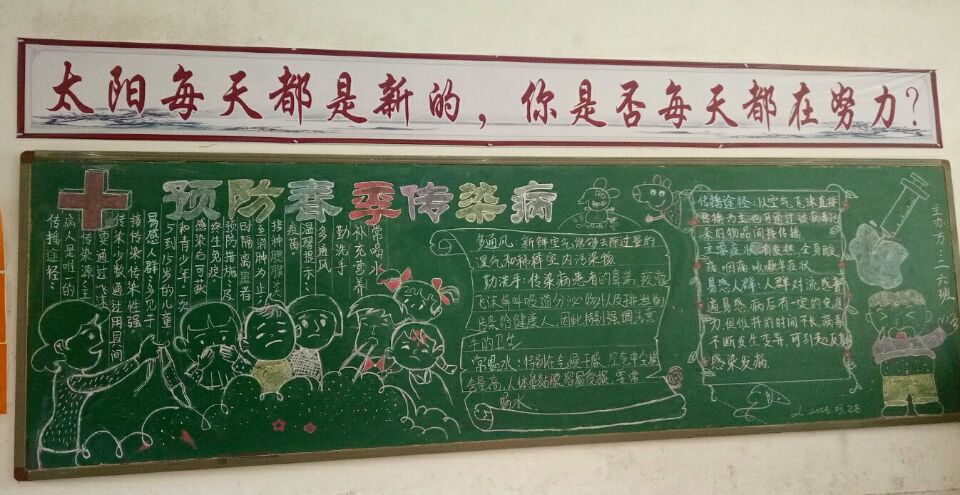 太阳每天都是新的，你是否每天都在努力？
预防春季传染病
常喝水
补充营养
勤洗手
多通风
温馨提示：
疫苗。
接种腮腺炎
至消肿为止；
时隔离患者
预防措施：及
终生免疫。
感染后可获
和青少年。一次
5到15岁的儿童
易感人群：多见于
接传染传染性强。
传染少数通过用具间
要通过飞沫
传染源，主
病人是唯一的
传播途径：
多通风：新鲜空气能够去除过量的
湿气和稀释室内污染物
勤洗手：传染病患者的鼻涕，痰液
飞沫等呼吸道分泌物以及排泄物
传染给健康人，因此特别强调注意
手的卫生
常喝水：特别在空气干燥，空气中尘埃
含量高，人体鼻粘膜容易受损，要常
喝水
传播途径：以空气飞沫直接
传播为主也可通过被病毒污
染的物品间接传播
主要症状：有发热，全身酸
痛，咽痛，咳嗽等症状
易感人群：人群对流感普
遍易感，病后有一定的免疫
力，但维持的时间不长，病毒
不断发生变异，可引起反复
感染发病
主办方：二二六班
2018.03.28